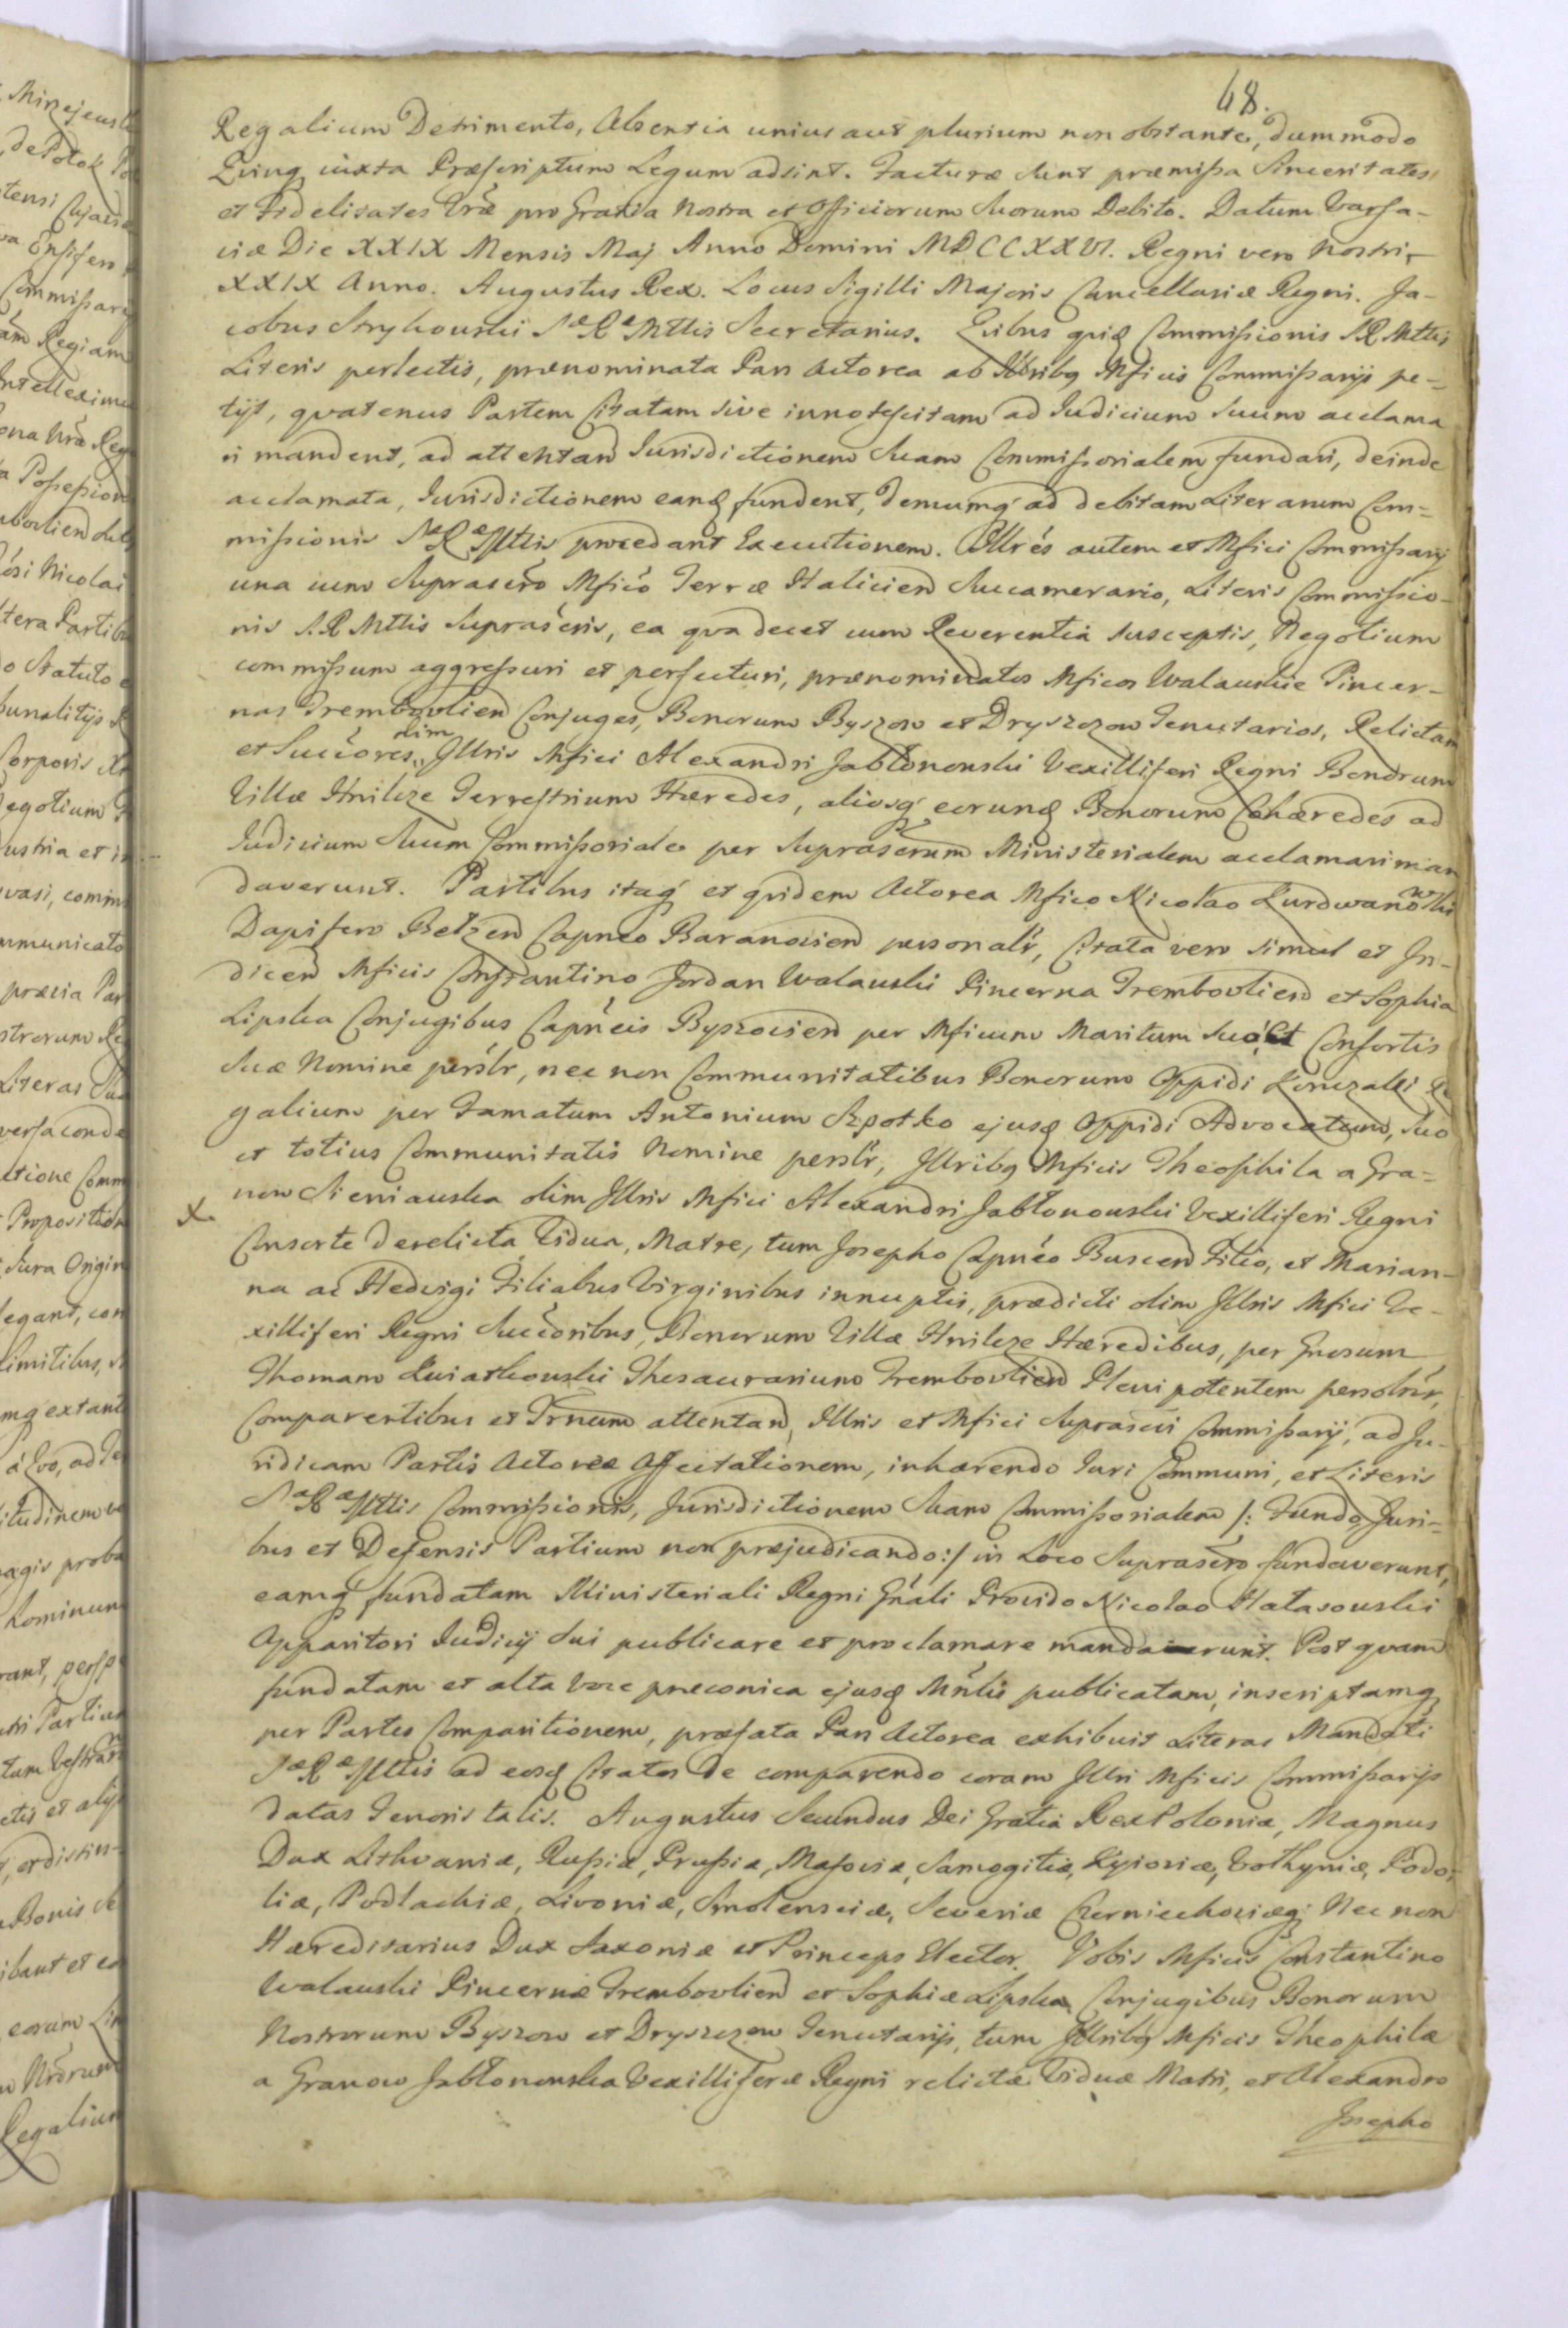 48.
Regalium Detrimento, Absentia unius aut plurium non obstante, dummodo
Quinq iuxta Præscriptum Legum adsint. Facturæ sunt præmissa Sinceritates
et Fidelitates Vræ pro Gratia Nostra et Officiorum Suorum Debito. Datum Varsa-
viæ Die XXIX Mensis Maj Anno Domini MDCCXXVI. Regni vero Nostri
XXIX Anno. Augustus Rex. Locus Sigilli Majoris Cancellariæ Regni. Ja-
cobus Strykowski Sæ Ræ Mttis Secretarius. Quibus quiq Commissionis S R Mttis
Literis perlectis, prænominata Pars Actorea ab Illribq Mficis Commissarijs pe-
tijt, qvatenus Partem Citatam sive innotescitam ad Judicium Suum acclama
ri mandent, ad attentand Jurisdictionem Suam Commissorialem fundari, deinde
acclamata, Jurisdictionem eanq fundent, demumq ad debitam Literarum Com-
missionis Sæ Ræ Mttis procedant Executionem. Illres autem et Mfici Commissarij
una cum Suprascro Mfico Terræ Halicien Succamerario, Literis Commissio-
nis S. R Mttis Suprascris, ea qva decet cum Reverentia susceptis, Negotium
commissum aggressuri et perfecturi, prænominatos Mficos Walawskie Pincer-
nas Trembovlien Conjuges, Bonorum Byszow et Dryszczow Tenutarios, Relictam
et Succores olim Illris Mfici Alexandri Jabłonowski Vexilliferi Regni Bonorum
Villæ Hnilcze Terrestrium Hæredes, aliosq eorunq Bonorum Cohæredes ad
Judicium Suum Commissoriale per Suprascrum Ministerialem acclamari man
daverunt. Partibus itaq et qvidem Actorea Mfico Nicolao Kurdwanowski
Dapifero Belzen Capneo Baranovien personalr, Citata vero simul et In-
dicen Mficis Constantino Jordan Walawski Pincerna Trembovlien et Sophia
Lipska Conjugibus Capneis Byszovien per Mficum Maritum Suo et Consortis
Suæ Nomine perslr, nec non Communitatibus Bonorum Oppidi Konczaki Re
galium per Famatum Antonium Szpotko ejusq Oppidi Advocatum, Suo
et totius Communitatis Nomine perslr, Illribq Mficis Theophila a Gra-
now Sieniawska olim Illris Mfici Alexandri Jabłonowski Vexilliferi Regni
X
Consorte derelicta Vidua, Matre, tum Josepho Capneo Buscen Filio, et Marian-
na ac Hedvigi Filiabus Virginibus innuptis, prædicti olim Illris Mfici Ve-
xilliferi Regni Succoribus, Bonorum Villæ Hnilcze Hæredibus, per Gnosum
Thomam Kwiatkowski Thesaurarium Trembovlien Plenipotentem personlr,
Comparentibus et Trnum attentan, Illris et Mfici Suprascri Commissarij, ad Ju-
ridicam Partis Actoreæ Affectationem, inhærendo Juri Communi, et Literis
Sæ Ræ Mttis Commissionis, Jurisdictionem Suam Commissorialem /: Fundo, Juri-
bus et Defensis Partium non præjudicando:/ in Loco Suprascro fundaverunt,
eamq fundatam Ministeriali Regni Gnali Provido Nicolao Hałasowski
Apparitori Judicij sui publicare et proclamare mandaverunt. Post qvam
fundatam et alta voce præconica ejusq Mnlis publicatam, inscriptamq
per Partes Comparitionem, præfata Pars Actorea exhibuit Literas Mandati
Sæ Ræ Mttis ad eosq Citatos de comparendo coram Illri Mficis Commissarijs
datas Tenoris talis. Augustus Secundus Dei Gratia Rex Poloniæ, Magnus
Dux Lithvaniæ, Russiæ, Prussiæ, Masoviæ, Samogitiæ, Kyioviæ, Volhyniæ, Podo-
liæ, Podlachiæ, Livoniæ, Smolensciæ, Severiæ Czerniechoviæq Nec non
Hæreditarius Dux Saxoniæ et Princeps Elector. Vobis Mficis Constantino
Walawski Pincernæ Trembovlien et Sophiæ Lipska Conjugibus Bonorum
Nostrorum Byszow et Dryszczow Tenutarijs, tum Illribq Mficis Theophilæ
a Granow Jabłonowska Vexilliferæ Regni relictæ Viduæ Matri, et Alexandro
Josepho